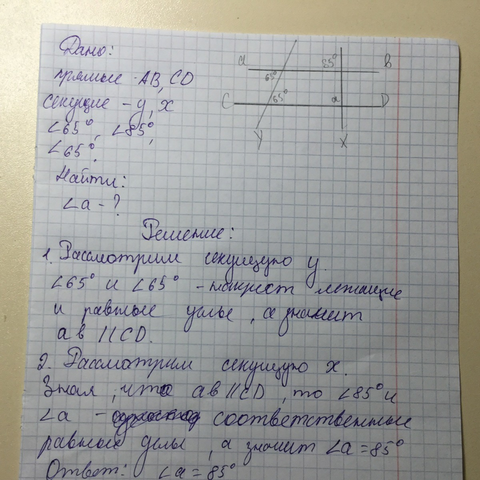 Дано:
прямые AB, CD
секущие - y, x
∠65°, ∠85°,
∠65°.
Найти:
∠a - ?
a 85° B
65°
C 65° a D
y x
Решение:
1. Рассмотрим секущую y.
∠65° и ∠65° - накрест лежащие
и равные углы, а значит
ab || CD.
2. Рассмотрим секущую x.
Зная, что ab || CD, то ∠85° и
∠a - соответственные
равные углы, а значит ∠a = 85°
Ответ: ∠a = 85°